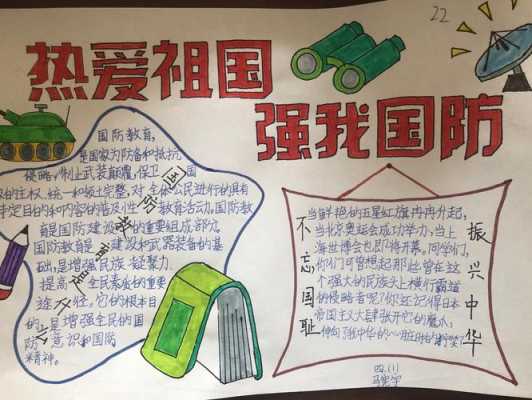 22
热爱祖国
强我国防
国防教育,
是国家为防备和抵抗
侵略,制止武装颠覆,保卫国
的主权、统一和领土完整,对全体公民进行的具有
特定目的和内容的普及性教育活动。国防教
育是国防建设的重要组成部分。
国防教育是建设和武器装备的基
础,是增强民族凝聚力,
提高全民素养的重要
途径。它的根本目
的是增强全民的国
防意识和国防
精神。
国防教育
当鲜艳的五星红旗冉冉升起,
当北京奥运会成功举办,当上
海世博会也即将开幕,同学们,
你们可曾想起那些曾在这
个强大的民族头上横行霸道
的侵略者呢?你还记得日本
帝国主义大肆张开它的魔爪,
伸向
中华的心脏时的
不忘国耻
振兴中华
四.(1)
马
宇